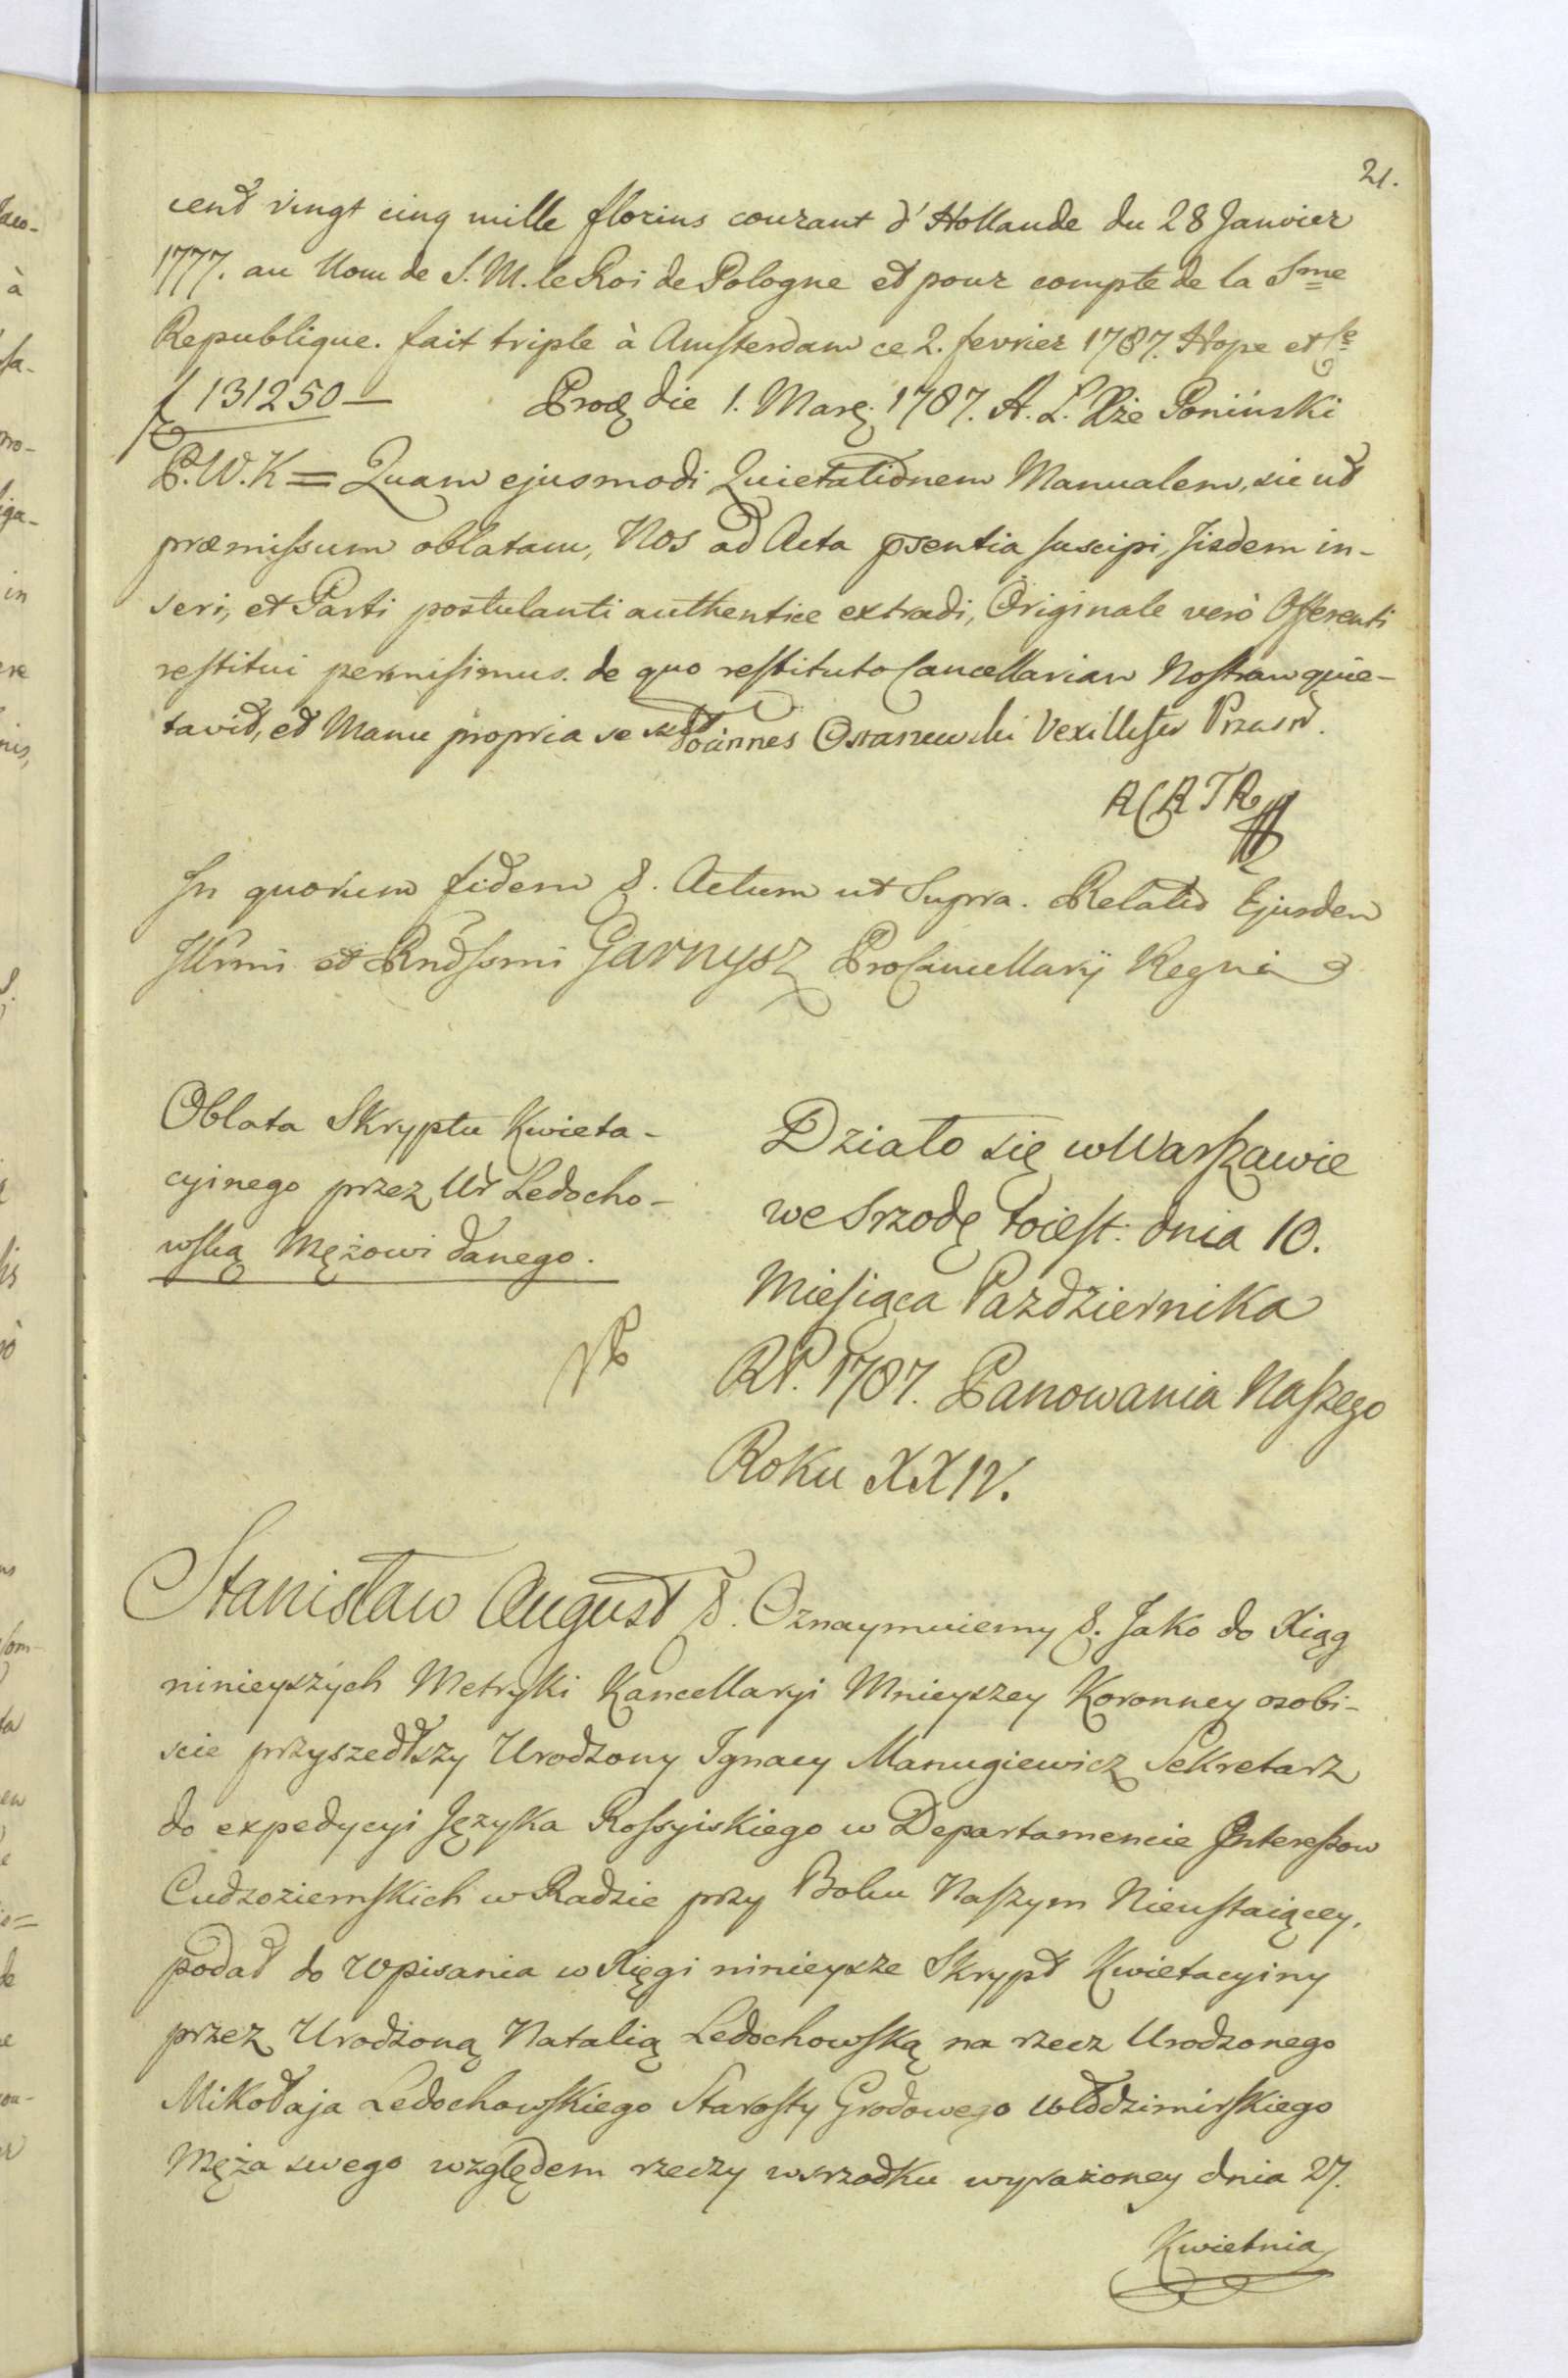 21.
cent vingt cinq mille florins courant d'Hollande du 28 Janvier
1777. au Nom de S. M. le Roi de Pologne et pour compte de la Sme
Republique. fait triple à Amsterdam ce 2. fevrier 1787. Hope et Ce
f 131250 — Prod die 1. Marz. 1787. A. L. Xże Poniński
P. W. K = Quam ejusmodi Quietationem Manualem, sic ut
præmissum oblatam, Nos ad Acta psentia suscipi, Jisdem in-
seri, et Parti postulanti authentice extradi, Originale verò Offerenti
restitui permisimus. de quo restituto Cancellariam Nostram quie-
tavit, et Manu propria se Joannes Vexillifer Przasn.
In quorum fidem &. Actum ut Supra. Relatio Ejusdem
Jllrmi et Rndssmi Garnysz ProCancellarij Regni
Oblata Skryptu Kwieta-
cyinego przez Ur Ledocho-
wską Mężowi danego.
Działo się w Warszawie
we Srzodę toiest: dnia 10.
Miesiąca Pazdziernika
RP. 1787. Panowania Naszego
Roku XXIV.
Stanisław August &. Oznaymuiemy &. Jako do Xiąg
ninieyszych Metryki Kancellaryi Mnieyszey Koronney osobi-
scie przyszedłszy Urodzony Ignacy Manugiewicz Sekretarz
do expedycyi Języka Rossyiskiego w Departamencie Interessow
Cudzoziemskich w Radzie przy Boku Naszym Nieustaiącey,
podał do wpisania w Xięgi ninieysze Skrypt Kwietacyiny
przez Urodzoną Natalią Ledochowską na rzecz Urodzonego
Mikołaja Ledochowskiego Starosty Grodowego Włodzimirskiego
Męża swego względem rzeczy wsrzodku wyrażoney dnia 27.
Kwietnia